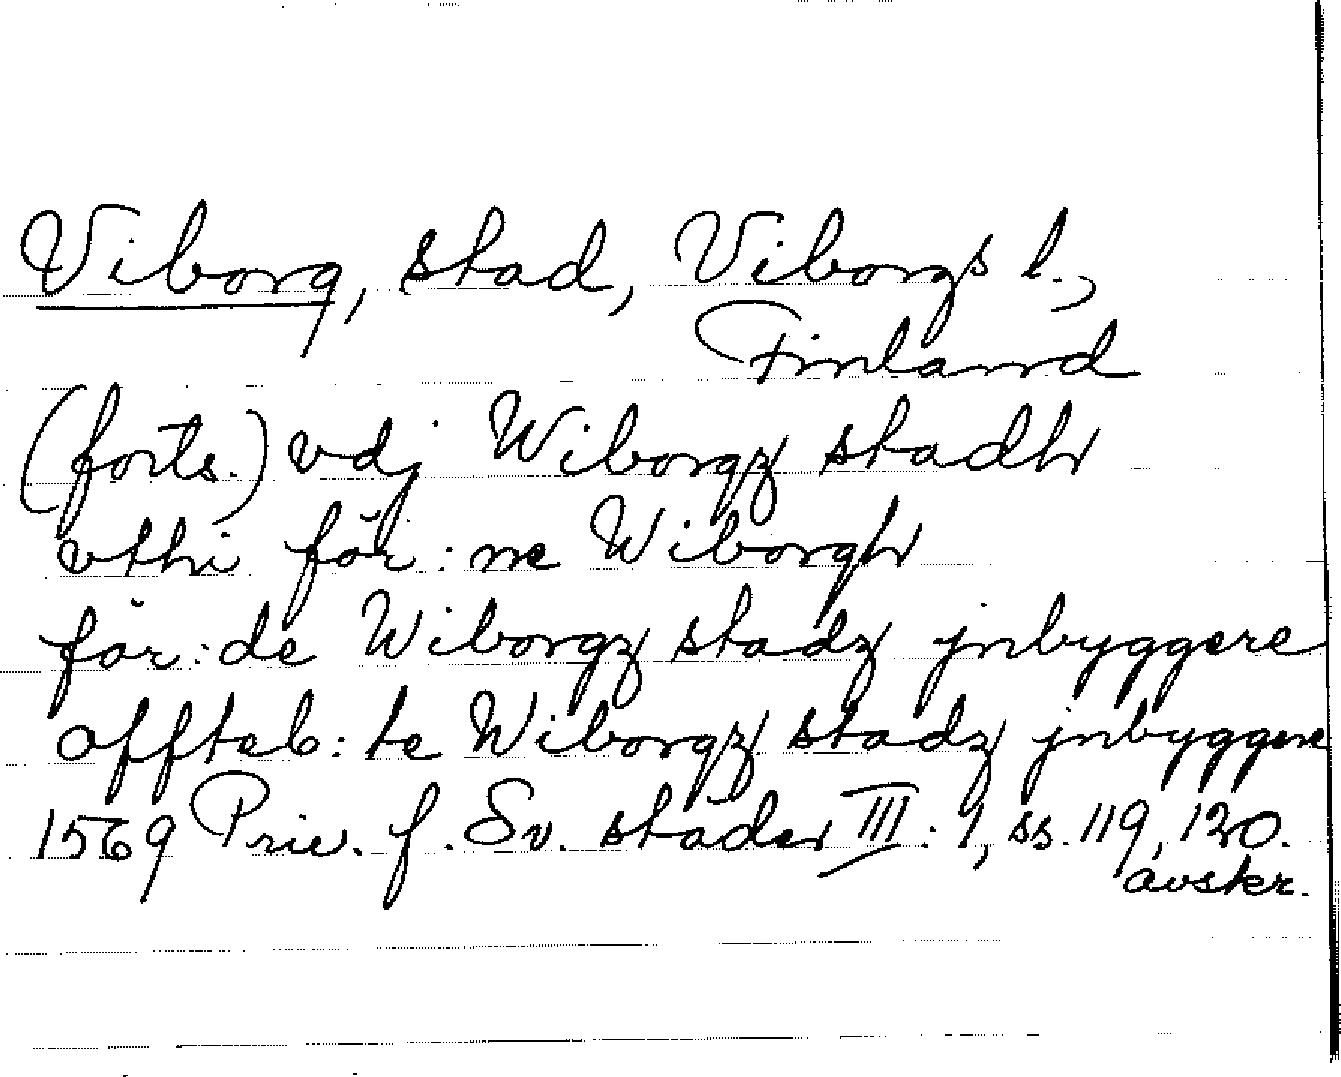 Viborg, stad, Viborgs l.,
Finland
(forts.) vdj Wiborgz stadh
vthi för:ne Wiborgh
för:de Wiborgz stadz jnbyggere
offteb:te Wiborgz stadz jnbyggere
1569 Priv. f. Sv. städer III: 1, ss. 119, 120.
avskr.